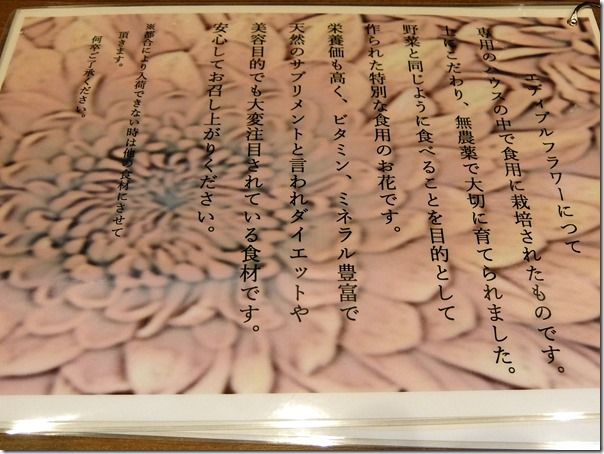 エディブルフラワーにつて
専用のハウスの中で食用に栽培されたものです。
土にこだわり、無農薬で大切に育てられました。
野菜と同じように食べることを目的として
作られた特別な食用のお花です。
栄養価も高く、ビタミン、ミネラル豊富で
天然のサプリメントと言われダイエットや
美容目的でも大変注目されている食材です。
安心してお召し上がりください。
※都合により入荷できない時は他の食材にさせて
頂きます。
何卒ご了承ください。